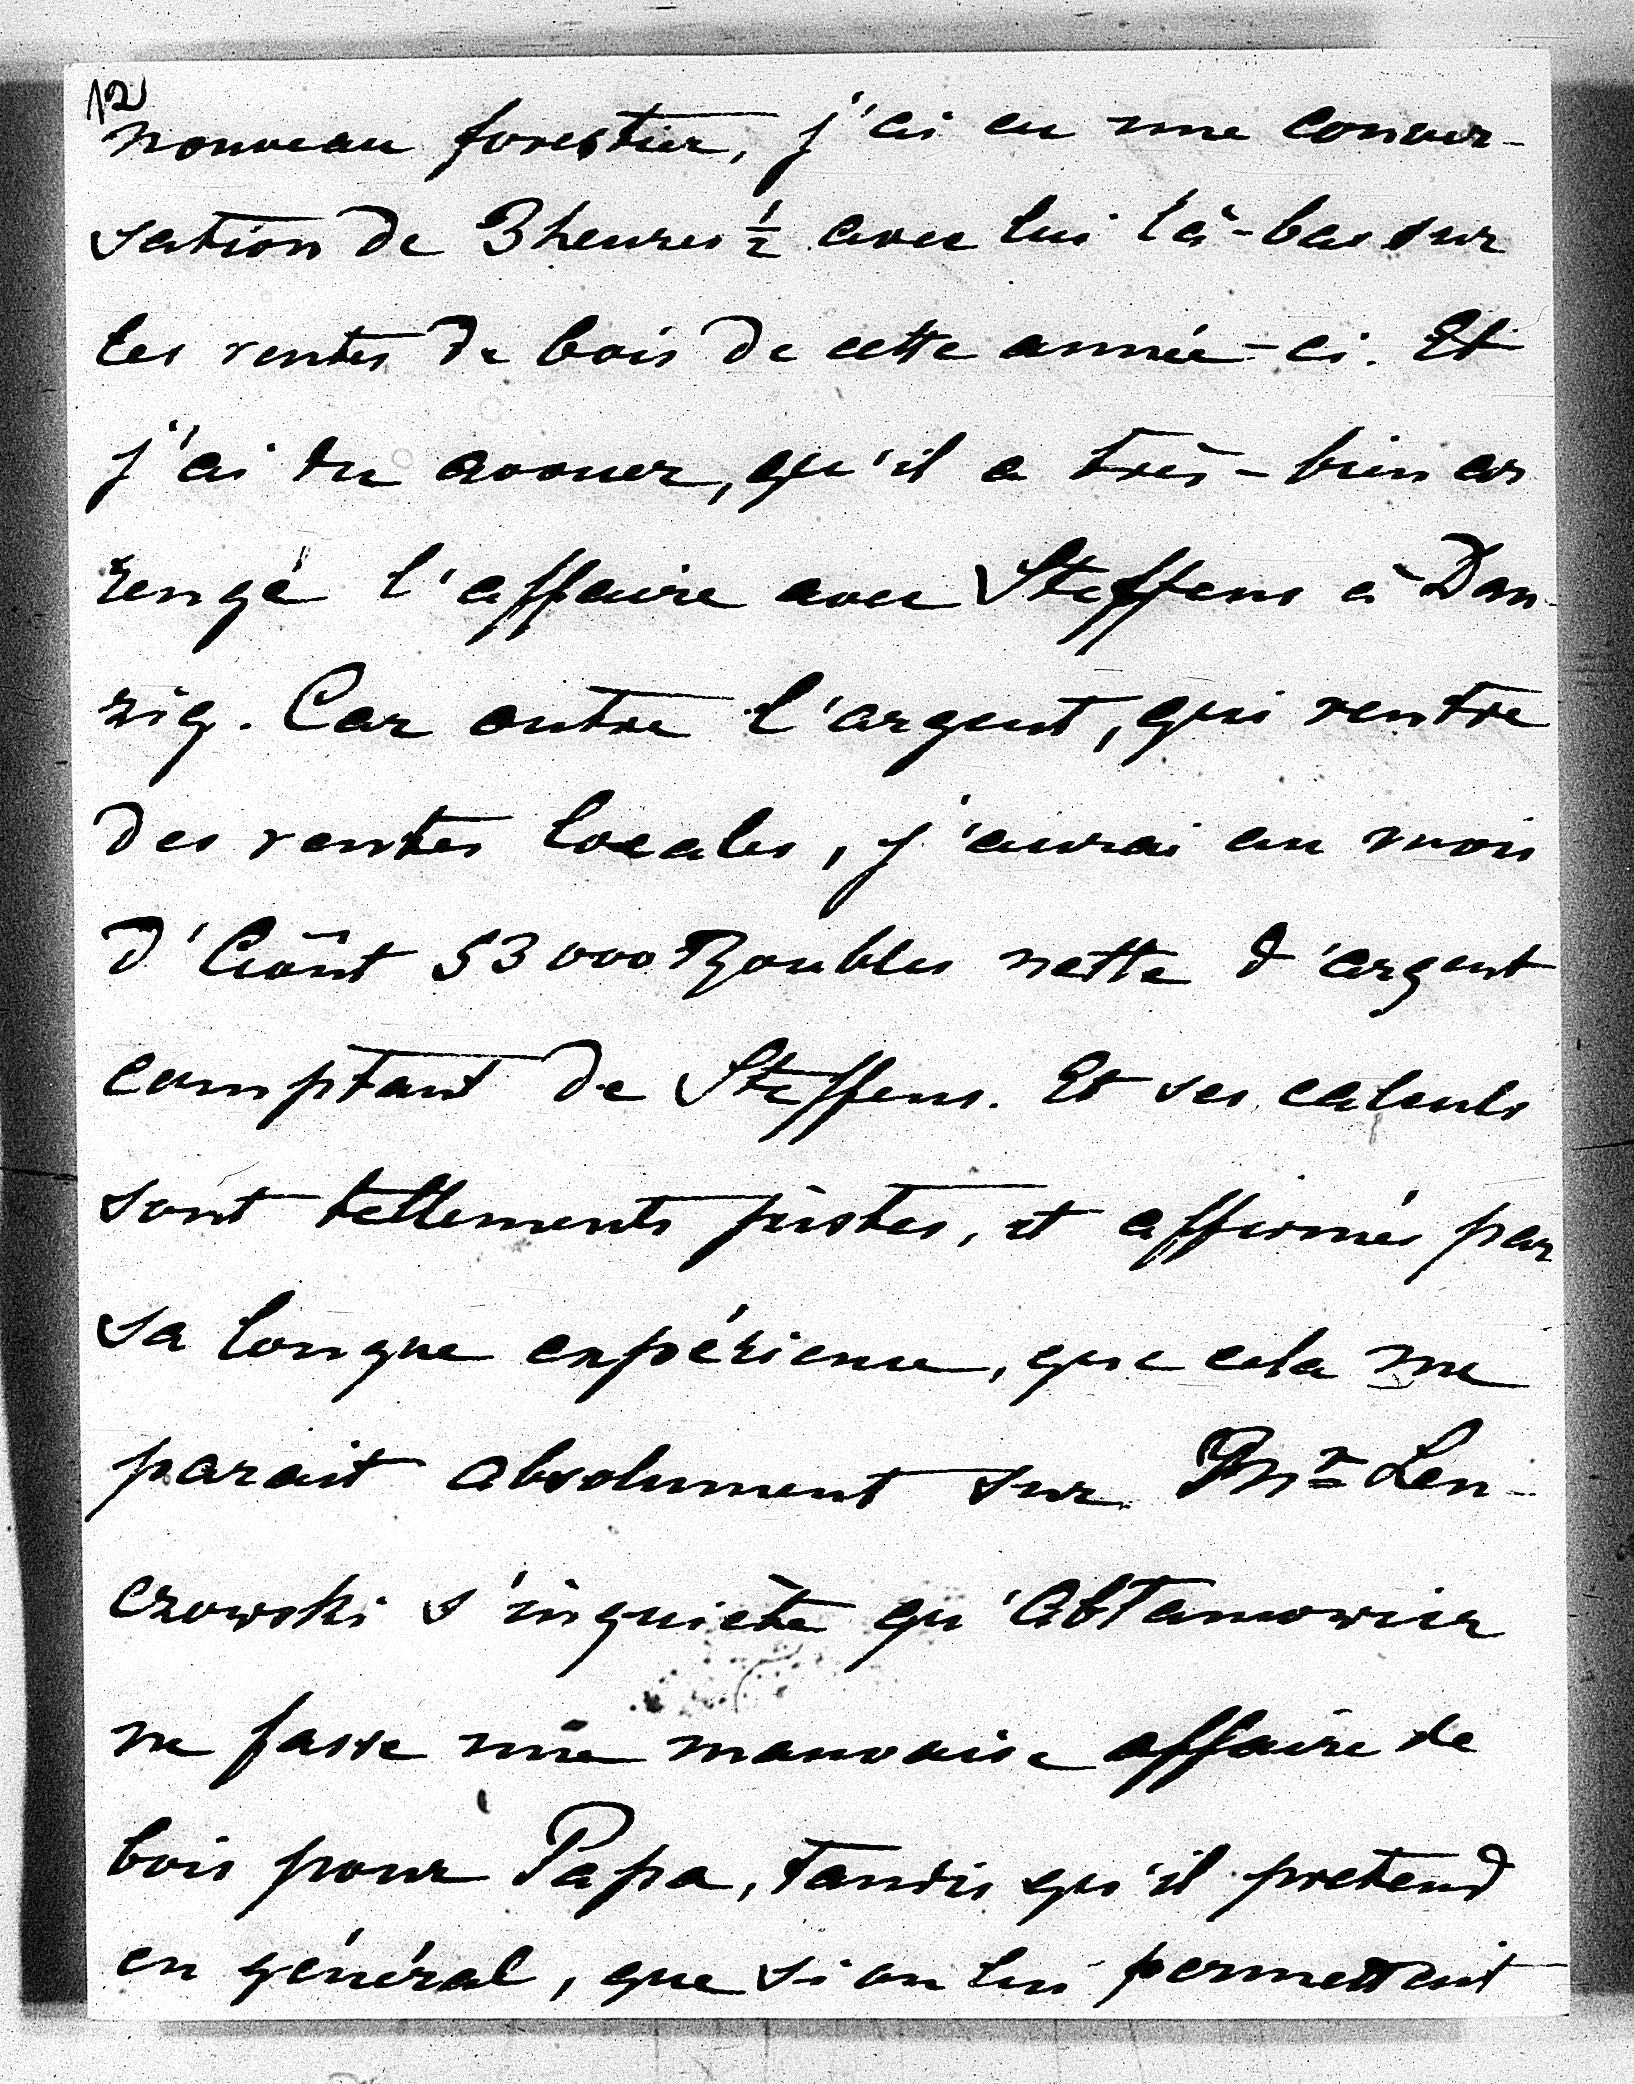 12
nouveau forestier, j'ai eu une conver-
sation de 3 heures ½ avec lui là-bas sur
les ventes de bois de cette année-ci. Et
j'ai du avouer, qu'il a très-bien ar
rengé l'affaire avec Steffens à Dan-
zig. Car outre l'argent, qui rentre
des ventes locales, j'aurai au mois
d'Août 53000 Roubles nette d'argent
comptant de Steffens. Et ses calculs
sont tellements justes, et affirmés par
sa longue expérience, que cela me
parait absolument sur. Mr Len-
czowski s'inquiète qu'Abtamowicz
ne fasse une mauvaise affaire de
bois pour Papa, tandis qu'il pretend
en général, que si on lui permettait